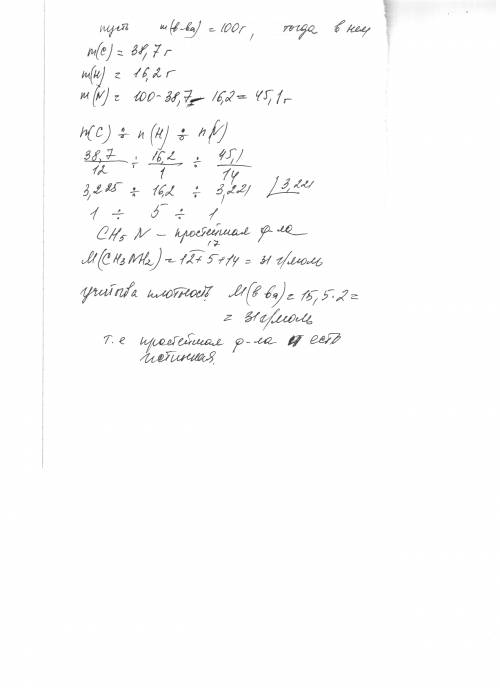 пусть m(в-ва) = 100г, тогда в нем
m(C) = 38,7 г
m(H) = 16,2 г
m(N) = 100-38,7-16,2 = 45,1 г
n(C) ÷ n(H) ÷ n(N)
38,7/12 ÷ 16,2/1 ÷ 45,1/14
3,225 ÷ 16,2 ÷ 3,221 | 3,221
1 ÷ 5 ÷ 1
CH5N - простейшая ф-ла
17
M(CH3NH2) = 12+5+14 = 31 г/моль
учитыва плотность M(в-ва) = 15,5·2 =
= 31 г/моль
т.е простейшая ф-ла и есть
истинная.